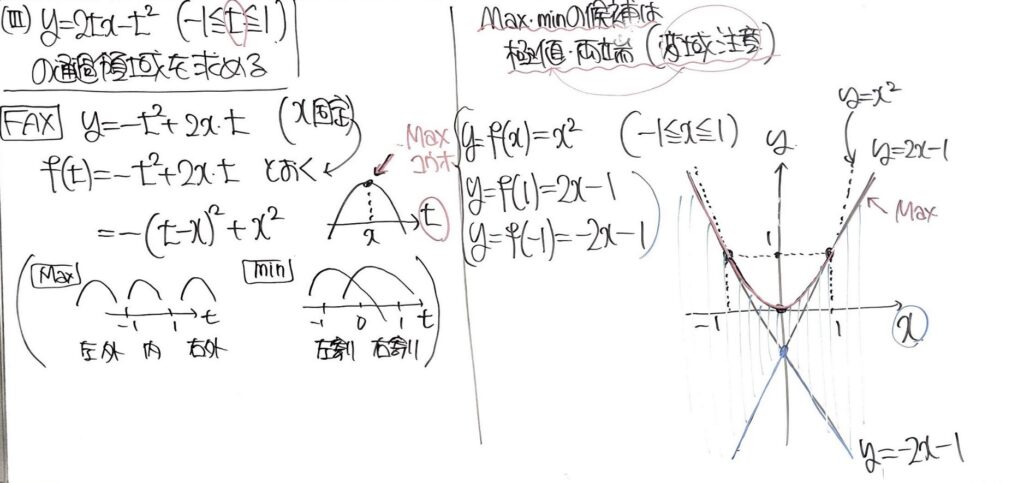 (Ⅲ) y=2tx-t² (-1≦t≦1)
の通過領域を求める
FAX y=-t²+2x・t (x固定)
f(t)=-t²+2x・t とおく
=-(t-x)²+x²
Max
コウホ
x t
Max
-1 1 t
左外 内 右外
min
-1 0 1 t
左寄り 右寄り
Max・minの候補は
極値・両端 (変域注意)
y=f(x)=x² (-1≦x≦1)
y=f(1)=2x-1
y=f(-1)=-2x-1
y
y=x²
y=2x-1
Max
1
-1 1 x
y=-2x-1